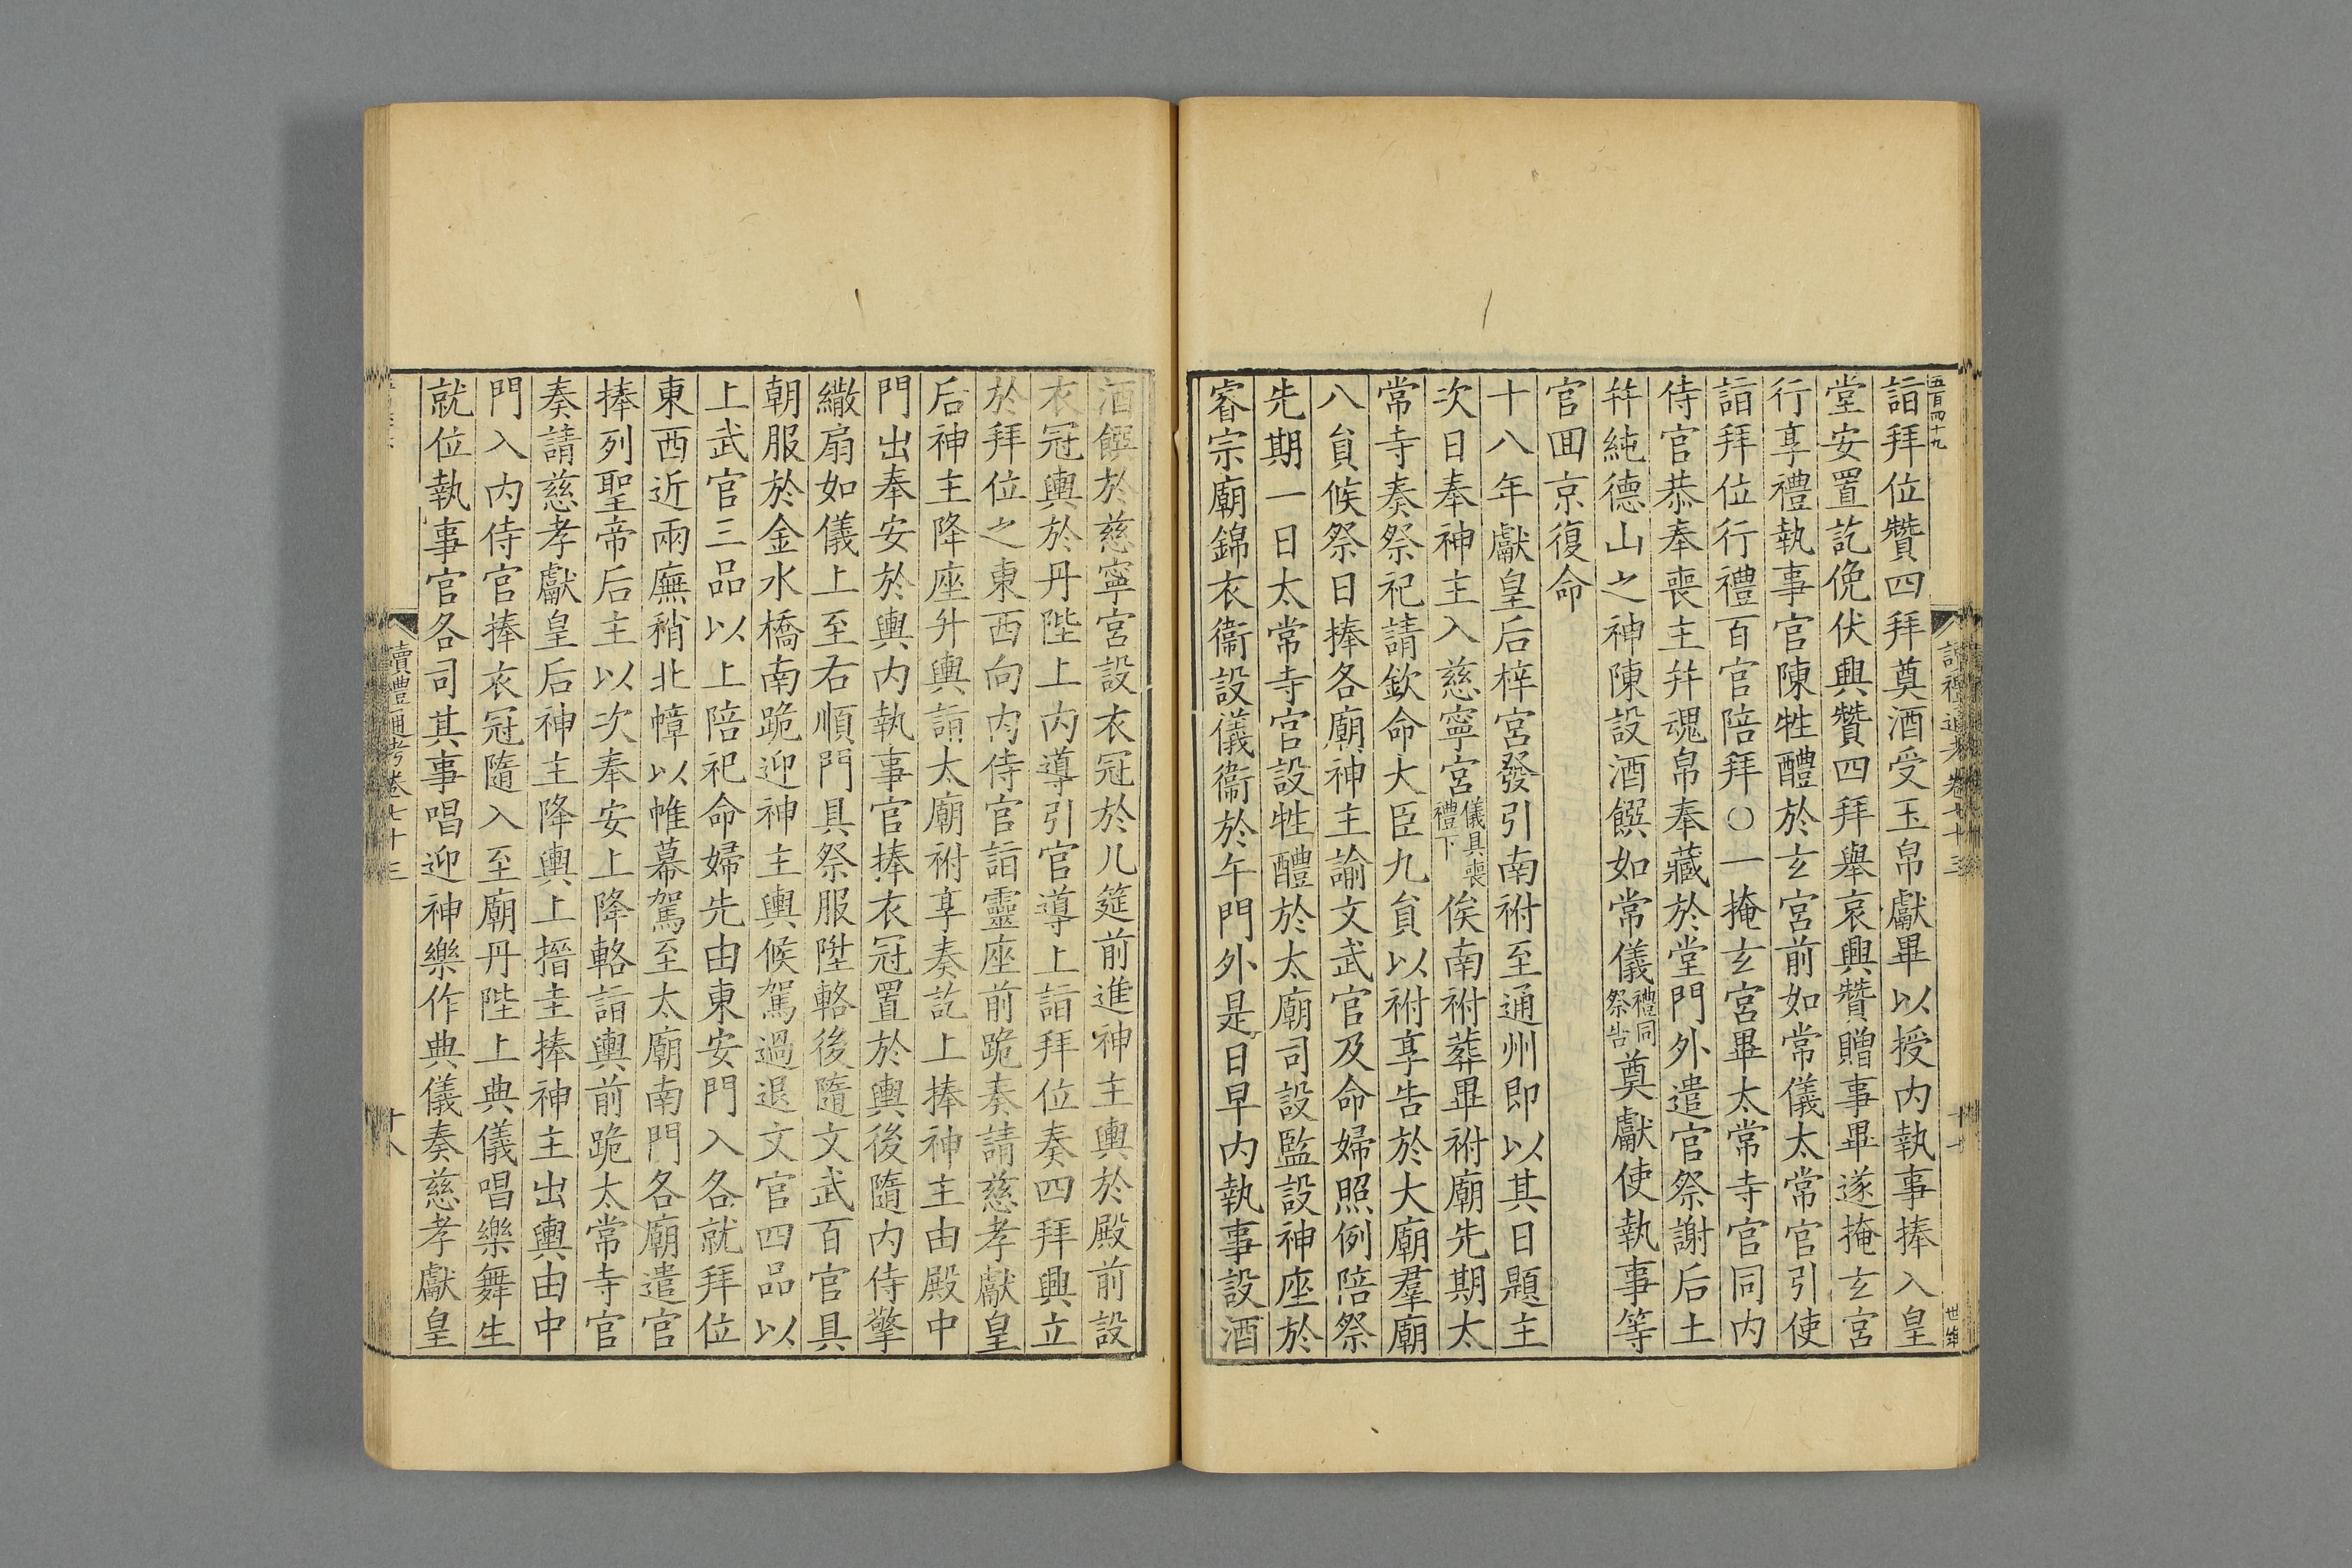 五百四十九
詣拜位贊四拜奠酒受玉帛獻畢以授内執事捧入皇
堂安置訖俛伏興贊四拜舉哀興贊贈事畢遂掩玄宮
行享禮執事官陳牲醴於玄宮前如常儀太常官引使
詣拜位行禮百官陪拜○一掩玄宮畢太常寺官同内
侍官恭奉喪主幷魂帛奉藏於堂門外遣官祭謝后土
幷純德山之神陳設酒饌如常儀禮同祭告奠獻使執事等
官囬京復命
十八年獻皇后梓宮發引南祔至通州即以其日題主
次日奉神主入慈寧宮儀具喪禮下俟南祔葬畢祔廟先期太
常寺奏祭祀請欽命大臣九員以祔享告於大廟羣廟
八員候祭日捧各廟神主諭文武官及命婦照例陪祭
先期一日太常寺官設牲醴於太廟司設監設神座於
睿宗廟錦衣衞設儀衞於午門外是日早内執事設酒
讀禮通考卷七十三
十七
酒饌於慈寧宮設衣冠於几筵前進神主輿於殿前設
衣冠輿於丹陛上内導引官導上詣拜位奏四拜興立
於拜位之東西向内侍官詣靈座前跪奏請慈孝獻皇
后神主降座升輿詣太廟祔享奏訖上捧神主由殿中
門出奉安於輿内執事官捧衣冠置於輿後隨内侍擎
繖扇如儀上至右順門具祭服陞輅後隨文武百官具
朝服於金水橋南跪迎神主輿候駕過退文官四品以
上武官三品以上陪祀命婦先由東安門入各就拜位
東西近兩廡稍北幛以帷幕駕至太廟南門各廟遣官
捧列聖帝后主以次奉安上降輅詣輿前跪太常寺官
奏請慈孝獻皇后神主降輿上搢圭捧神主出輿由中
門入内侍官捧衣冠隨入至廟丹陛上典儀唱樂舞生
就位執事官各司其事唱迎神樂作典儀奏慈孝獻皇
讀禮通考卷七十三
十八